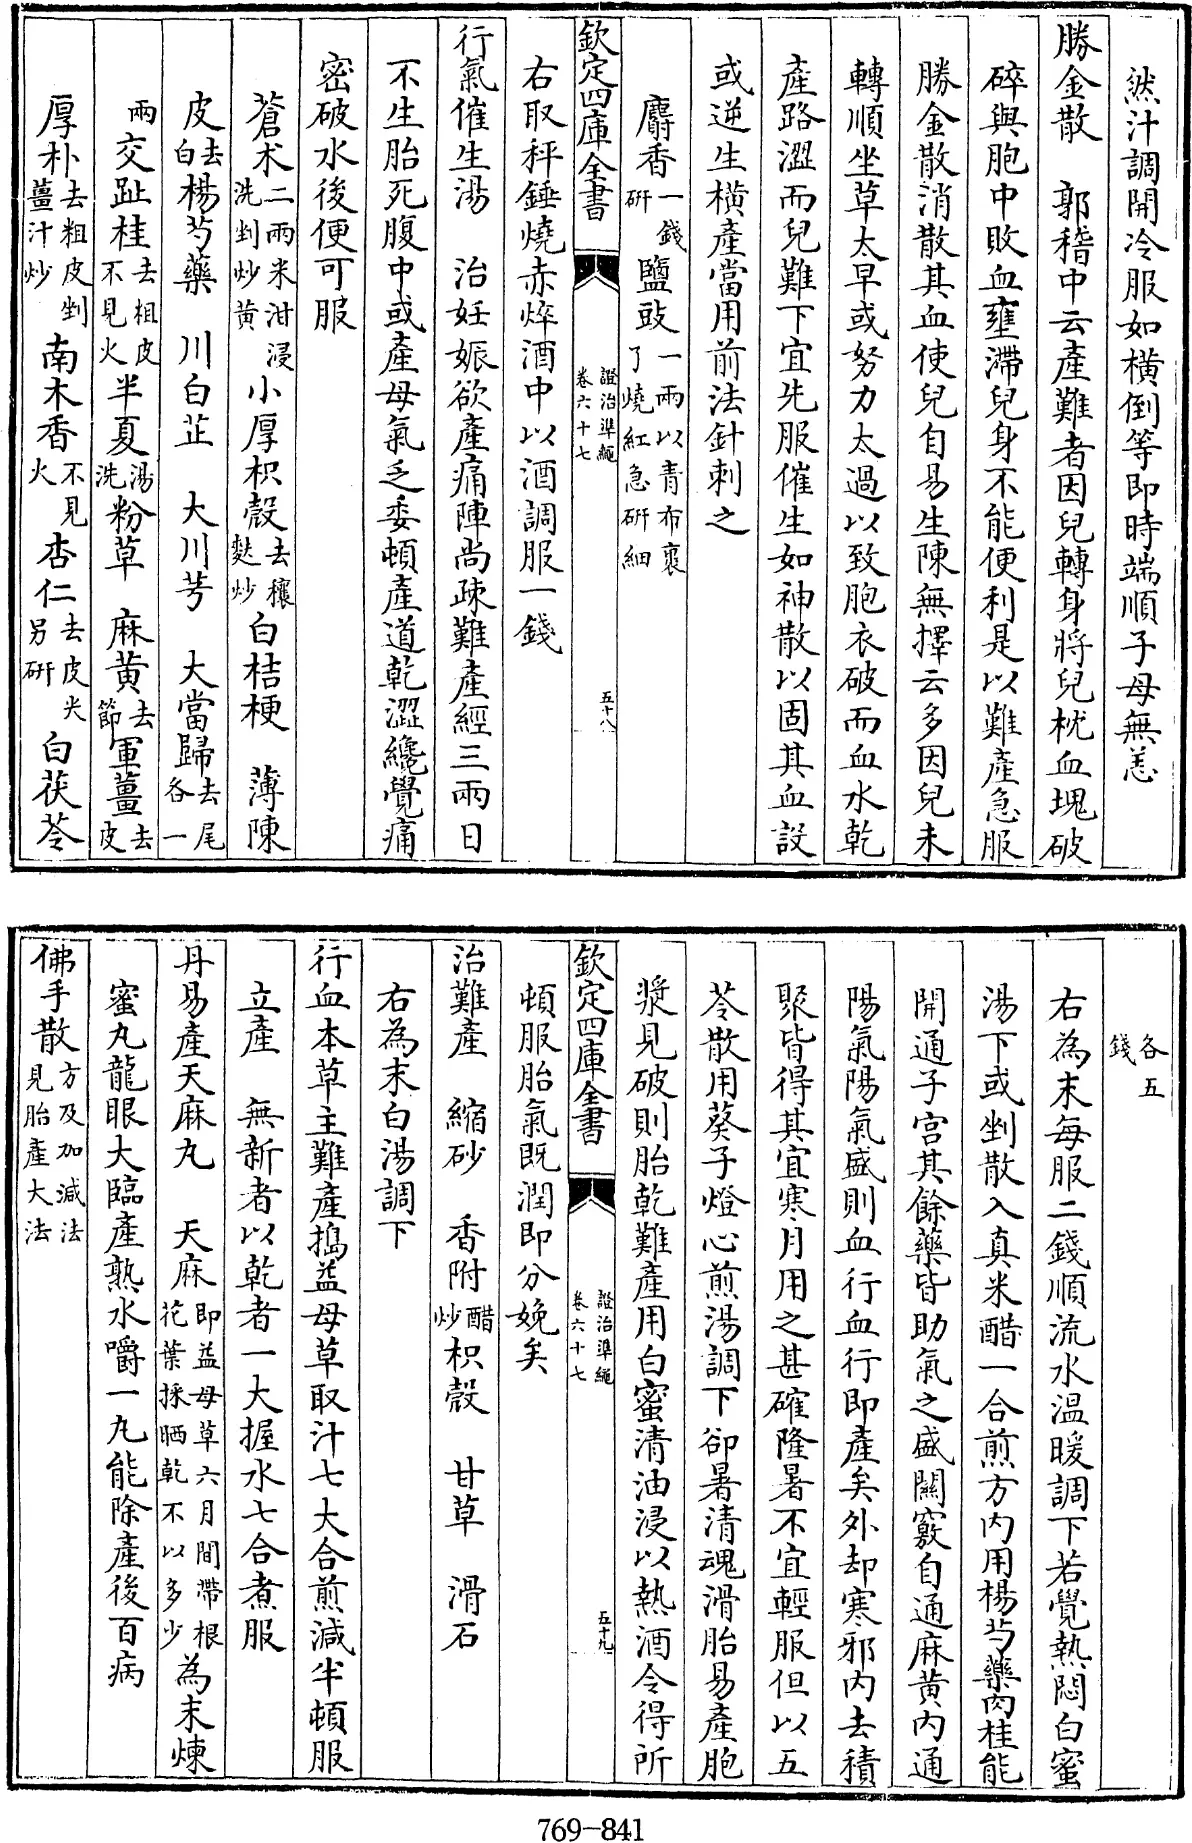 然汁調開冷服如橫倒等即時端順子母無恙
勝金散　郭稽中云產難者因兒轉身將兒枕血塊破
碎與胞中敗血壅滯兒身不能便利是以難產急服
勝金散消散其血使兒自易生陳無擇云多因兒未
轉順坐草太早或努力太過以致胞衣破而血水乾
產路澀而兒難下宜先服催生如神散以固其血設
或逆生橫產當用前法針刺之
麝香一錢研　鹽豉一兩以青布裹了燒紅急研細
欽定四庫全書　證治準繩卷六十七　五十八
右取秤錘燒赤焠酒中以酒調服一錢
行氣催生湯　治妊娠欲產痛陣尚疎難產經三兩日
不生胎死腹中或產母氣乏委頓產道乾澀纔覺痛
密破水後便可服
蒼术二兩米泔浸洗剉炒黃　小厚枳殼去穰麩炒　白桔梗　薄陳
皮去白　楊芍藥　川白芷　大川芎　大當歸去尾各一
兩　交趾桂去粗皮不見火　半夏湯洗　粉草　麻黃去節　軍薑去皮
厚朴去粗皮剉薑汁炒　南木香不見火　杏仁去皮尖另研　白茯苓
各五錢
右為末每服二錢順流水温暖調下若覺熱悶白蜜
湯下或剉散入真米醋一合煎方内用楊芍藥肉桂能
開通子宮其餘藥皆助氣之盛關竅自通麻黃内通
陽氣陽氣盛則血行血行即產矣外却寒邪内去積
聚皆得其宜寒月用之甚確隆暑不宜輕服但以五
苓散用葵子燈心煎湯調下卻暑清魂滑胎易產胞
漿見破則胎乾難產用白蜜清油浸以熱酒令得所
欽定四庫全書　證治準繩卷六十七　五十九
頓服胎氣既潤即分娩矣
治難產　縮砂　香附醋炒　枳殼　甘草　滑石
右為末白湯調下
行血本草主難產搗益母草取汁七大合煎減半頓服
立產　無新者以乾者一大握水七合煮服
丹易產天麻丸　天麻即益母草六月間帶根花葉採晒乾不以多少　為末煉
蜜丸龍眼大臨產熟水嚼一丸能除產後百病
佛手散方及加減法見胎產大法
769-841